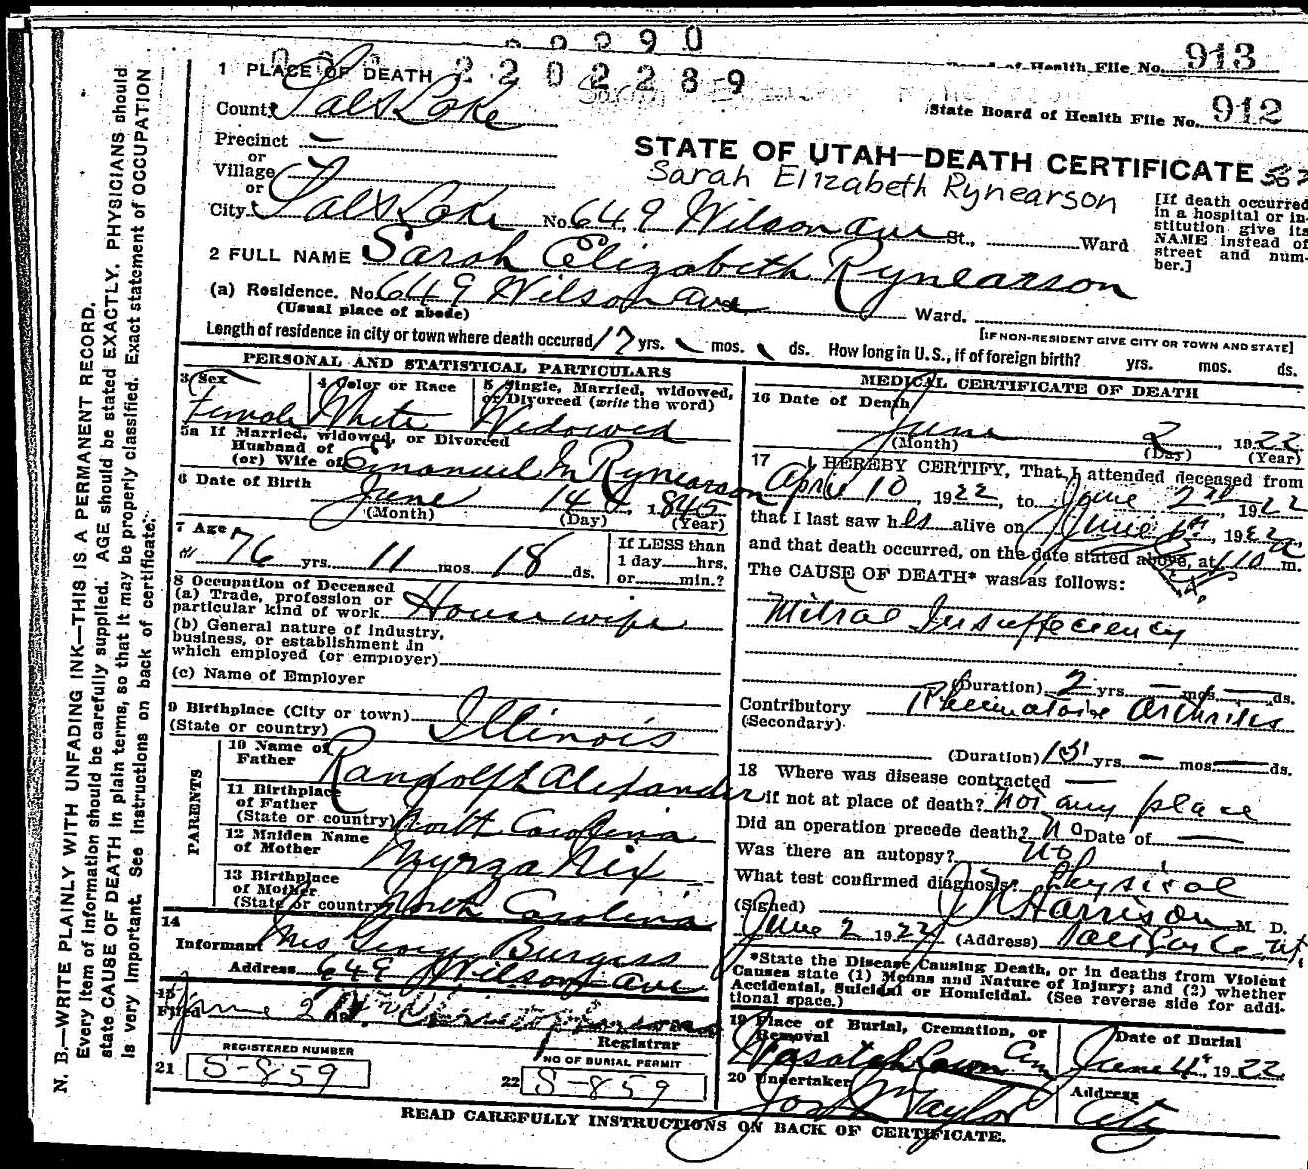 0090
2202289
Board of Health File No. 913
State Board of Health File No. 912
1 PLACE OF DEATH
County Salt Lake
Precinct —
or
Village
or
City Salt Lake No. 649 Wilson Ave St., Ward
STATE OF UTAH—DEATH CERTIFICATE
Sarah Elizabeth Rynearson
[If death occurred
in a hospital or in-
stitution give its
NAME instead of
street and num-
ber.]
2 FULL NAME Sarah Elizabeth Rynearson
(a) Residence. No. 649 Wilson Ave Ward.
(Usual place of abode)
[IF NON-RESIDENT GIVE CITY OR TOWN AND STATE]
Length of residence in city or town where death occured 17 yrs. mos. ds. How long in U.S., if of foreign birth? yrs. mos. ds.
PERSONAL AND STATISTICAL PARTICULARS
3 Sex Female
4 Color or Race White
5 Single, Married, widowed,
or Divorced (write the word)
Widowed
5a If Married, widowed, or Divorced
Husband of
(or) Wife of Emanuel M Rynearson
6 Date of Birth June 14 1845
(Month) (Day) (Year)
7 Age 76 yrs. 11 mos. 18 ds.
If LESS than
1 day hrs.
or min.?
8 Occupation of Deceased
(a) Trade, profession or
particular kind of work Housewife
(b) General nature of industry,
business, or establishment in
which employed (or employer)
(c) Name of Employer
9 Birthplace (City or town)
(State or country) Illinois
PARENTS
10 Name of
Father Randolph Alexander
11 Birthplace
of Father
(State or country) North Carolina
12 Maiden Name
of Mother Myrza Nix
13 Birthplace
of Mother
(State or country) North Carolina
14
Informant Mrs George Burgess
Address 649 Wilson Ave
15
Filed June 2
Registrar
REGISTERED NUMBER
21 S-859
NO OF BURIAL PERMIT
22 S-859
MEDICAL CERTIFICATE OF DEATH
16 Date of Death
June 2, 1922
(Month) (Day) (Year)
17 I HEREBY CERTIFY, That I attended deceased from
April 10, 1922, to June 2nd 1922
that I last saw her alive on June 1922
and that death occurred, on the date stated above, at 110 a m.
The CAUSE OF DEATH* was as follows:
Mitral Insufficiency
(Duration) 2 yrs. — mos. — ds.
Contributory Rheumatoid Arthritis
(Secondary)
(Duration) 15 yrs — mos. — ds.
18 Where was disease contracted —
if not at place of death? Not any place
Did an operation precede death? No Date of —
Was there an autopsy? No
What test confirmed diagnosis? Physical
(Signed) Harrison M. D.
June 2 1922 (Address) Salt Lake Ut.
*State the Disease Causing Death, or in deaths from Violent
Causes state (1) Means and Nature of Injury; and (2) whether
Accidental, Suicidal or Homicidal. (See reverse side for addi-
tional space.)
19 Place of Burial, Cremation, or
Removal
Wasatch Lawn Cem
Date of Burial
June 4, 1922
20 Undertaker
Taylor
Address
City
READ CAREFULLY INSTRUCTIONS ON BACK OF CERTIFICATE.
N. B.—WRITE PLAINLY WITH UNFADING INK—THIS IS A PERMANENT RECORD.
Every item of information should be carefully supplied. AGE should be stated EXACTLY. PHYSICIANS should
state CAUSE OF DEATH in plain terms, so that it may be properly classified. Exact statement of OCCUPATION
is very important. See instructions on back of certificate.